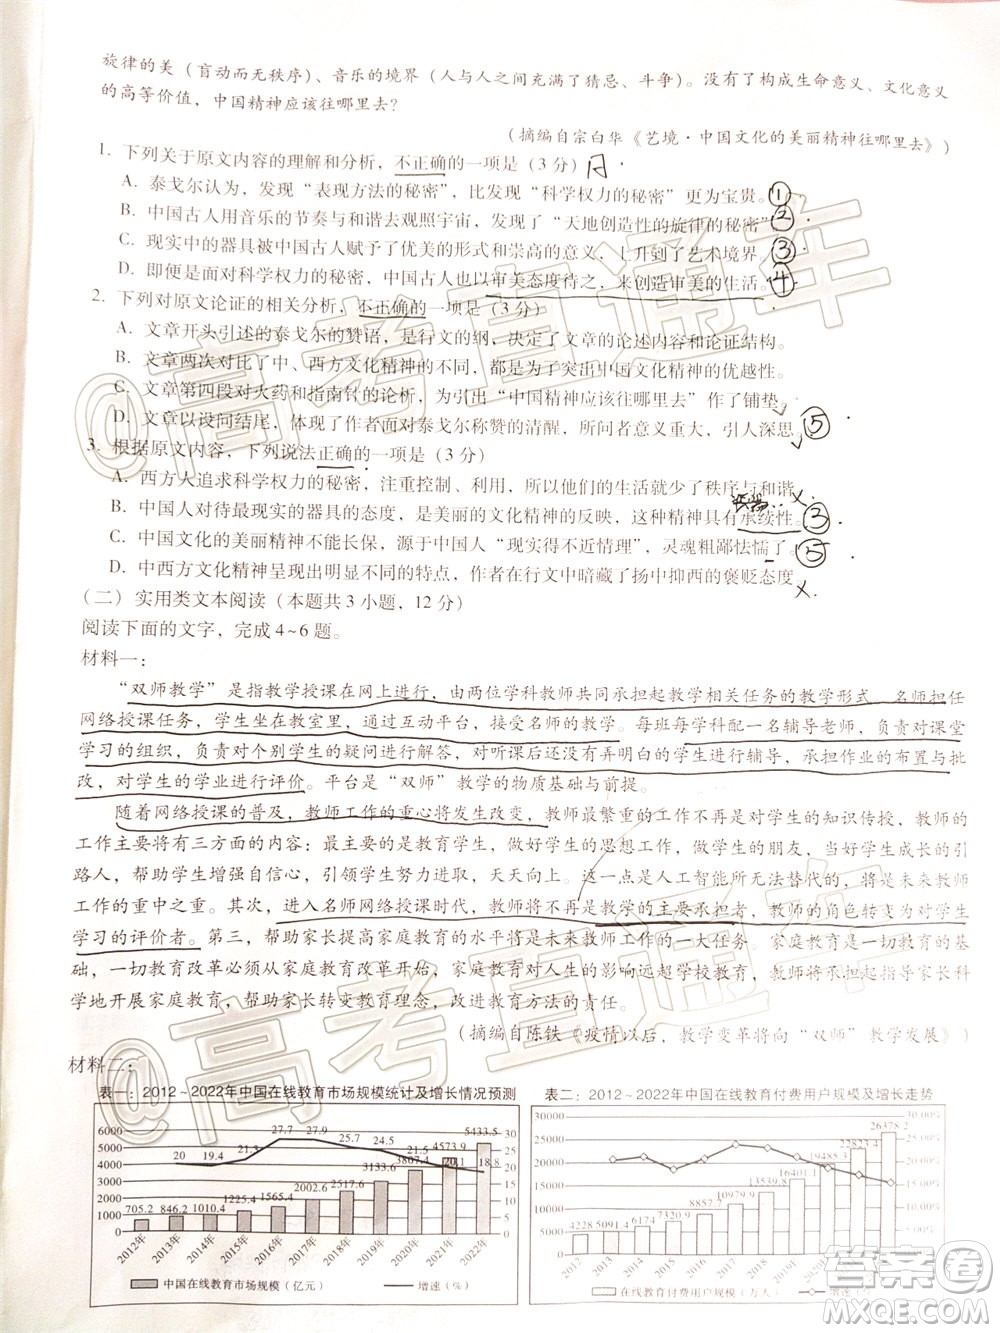 旋律的美（盲动而无秩序）、音乐的境界（人与人之间充满了猜忌、斗争）。没有了构成生命意义、文化意义
的高等价值，中国精神应该往哪里去？
（摘编自宗白华《艺境·中国文化的美丽精神往哪里去》）
1. 下列关于原文内容的理解和分析，不正确的一项是（3 分）A
A．泰戈尔认为，发现“表现方法的秘密”，比发现“科学权力的秘密”更为宝贵。①
B．中国古人用音乐的节奏与和谐去观照宇宙，发现了“天地创造性的旋律的秘密”②
C．现实中的器具被中国古人赋予了优美的形式和崇高的意义，上升到了艺术境界。③
D．即便是面对科学权力的秘密，中国古人也以审美态度待之，来创造审美的生活。④
2. 下列对原文论证的相关分析，不正确的一项是（3 分）
A．文章开头引述的泰戈尔的赞语，是行文的纲，决定了文章的论述内容和论证结构。
B．文章两次对比了中、西方文化精神的不同，在于突出中国文化精神的优越性。
C．文章第四段对火药和指南针的论析，为后文提出“中国精神应该往哪里去”作了铺垫。
D．文章以设问结尾，体现了作者面对泰戈尔称赞的清醒，所问者意义重大，引人深思。⑤
3. 根据原文内容，下列说法正确的一项是（3 分）
A．西方人追求科学权力的秘密，注重控制、利用，所以他们的生活就少了秩序与和谐。
B．中国人对待最现实的器具的态度，是美丽的文化精神的反映，这种精神具有承续性。③
C．中国文化的美丽精神不能长保，源于中国人“现实得不近情理”，灵魂粗鄙怯懦了。⑤
D．中西方文化精神呈现出明显不同的特点，作者在行文中暗藏了扬中抑西的褒贬态度。
（二）实用类文本阅读（本题共 3 小题，12 分）
阅读下面的文字，完成 4～6 题。
材料一：
“双师教学”是指教学授课在网上进行，由两位学科教师共同承担起教学相关任务的教学形式，名师担任
网络授课任务，学生坐在教室里，通过互动平台，接受名师的教学。每班每学科配一名辅导老师，负责对课堂
学习的组织，负责对个别学生的疑问进行解答，对听课后还没有弄明白的学生进行辅导，承担作业的布置与批
改，对学生的学业进行评价。平台是“双师”教学的物质基础与前提。
随着网络授课的普及，教师工作的重心将发生改变，教师最繁重的工作不再是对学生的知识传授，教师的
工作主要将有三方面的内容：最主要的是教育学生，做好学生的思想工作，做学生的朋友，当好学生成长的引
路人，帮助学生增强自信心，引领学生努力学习，天天向上。这一点是人工智能所无法替代的，将是未来教师
工作的重中之重。其次，进入名师网络授课时代，教师将不再是教学的主要承担者，教师的角色转变为对学生
学习的评价者。第三，帮助家长提高家庭教育的水平将是未来教师工作的一大任务。家庭教育是一切教育的基
础，一切教育改革必须从家庭教育开始，家庭教育对人生的影响远超学校教育，教师将承担起指导家长科
学地开展家庭教育，帮助家长转变教育理念，改进教育方法的责任。
（摘编自陈铁《疫情以后，教学变革将向“双师”教学发展》）
材料二：
表一：2012～2022年中国在线教育市场规模统计及增长情况预测
6000 5000 4000 3000 2000 1000 0
705.2 846.2 1010.4 1225.4 1565.4 2002.6 2517.6 3133.6 3807.4 4573.9 5433.5
20 19.4 21.3 27.7 27.9 20.1 18.8
30 25 20 15 10 5 0
2012年 2013年 2014年 2015年 2016年 2017年 2018年 2019年 2020年 2021年 2022年
中国在线教育市场规模（亿元） 增速（%）
表二：2012～2022年中国在线教育付费用户规模及增长走势
30000 25000 20000 15000 10000 5000 0
4228 5091.4 6174 7320.9 8987.5 10979.9 13539.8 16401.1 19485.3 22823.4 26378.2
30.00% 25.00% 20.00% 15.00% 10.00% 5.00% 0.00%
2012 2013 2014 2015 2016 2017 2018 2019 2020 2021 2022
在线教育付费用户规模（万人） 增速（%）
@高考直通车
@高考直通车
答案圈
MXQE.COM